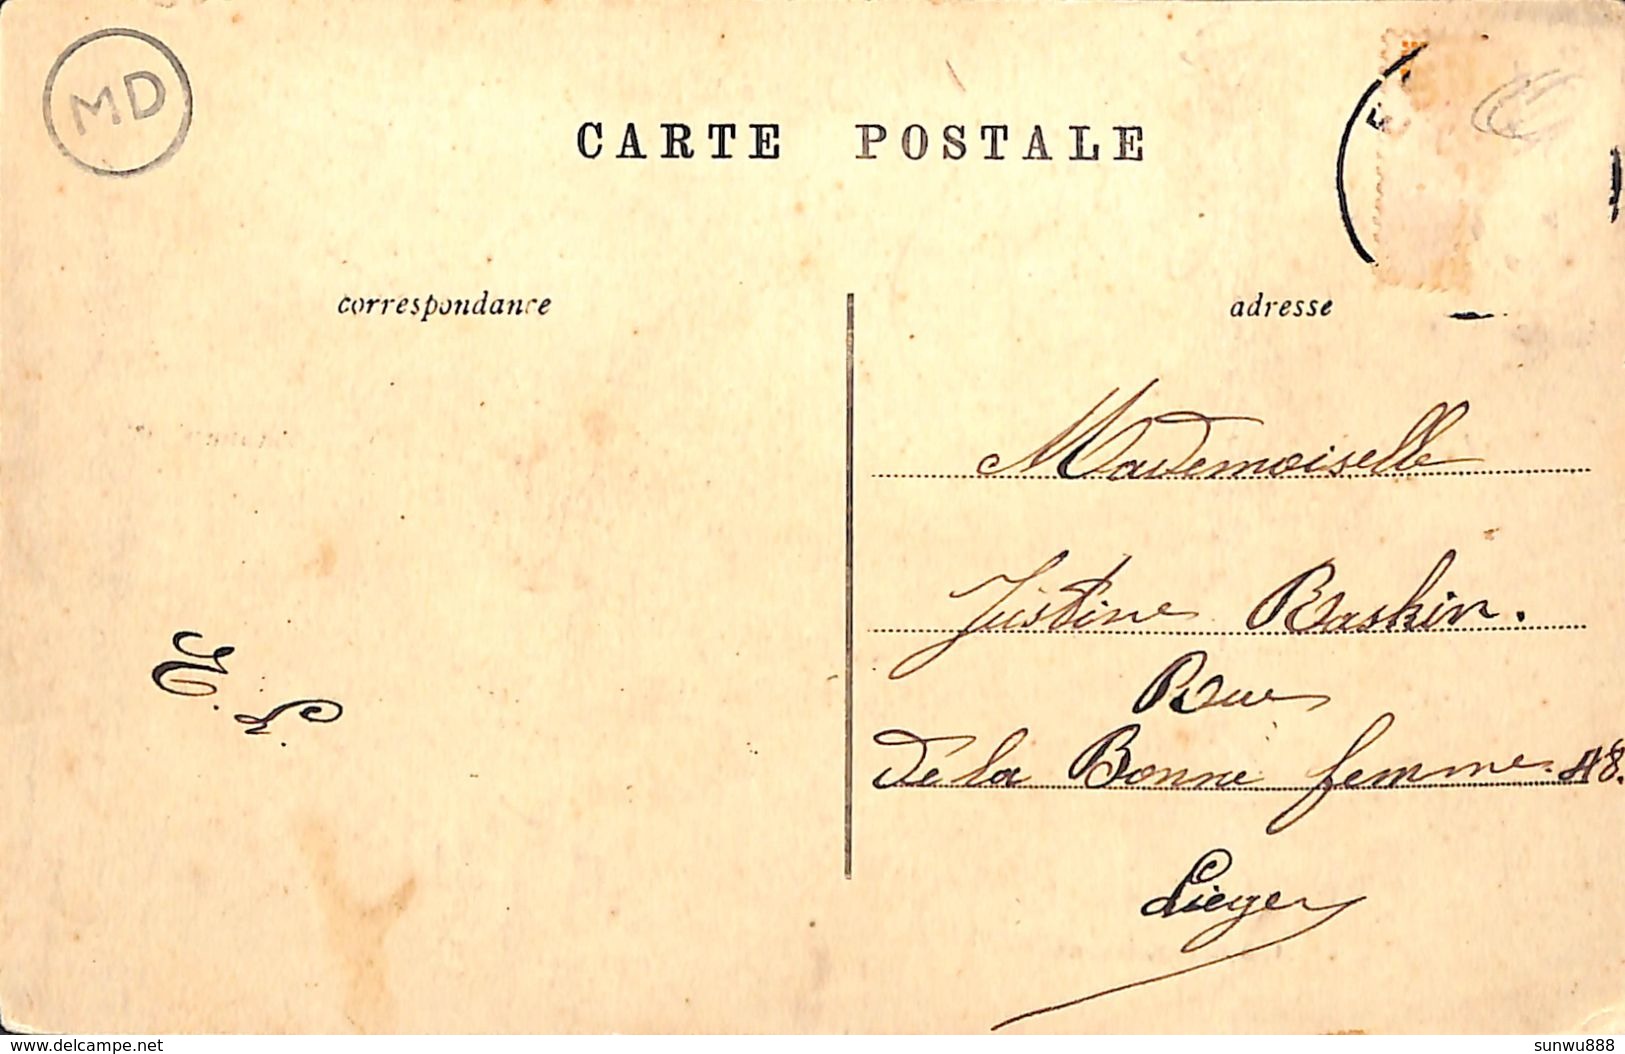 MD
CARTE POSTALE
correspondance
adresse
Mademoiselle
Justine Raskin.
Rue
De la Bonne femme.
Liége
www.delcampe.net
sunwu888